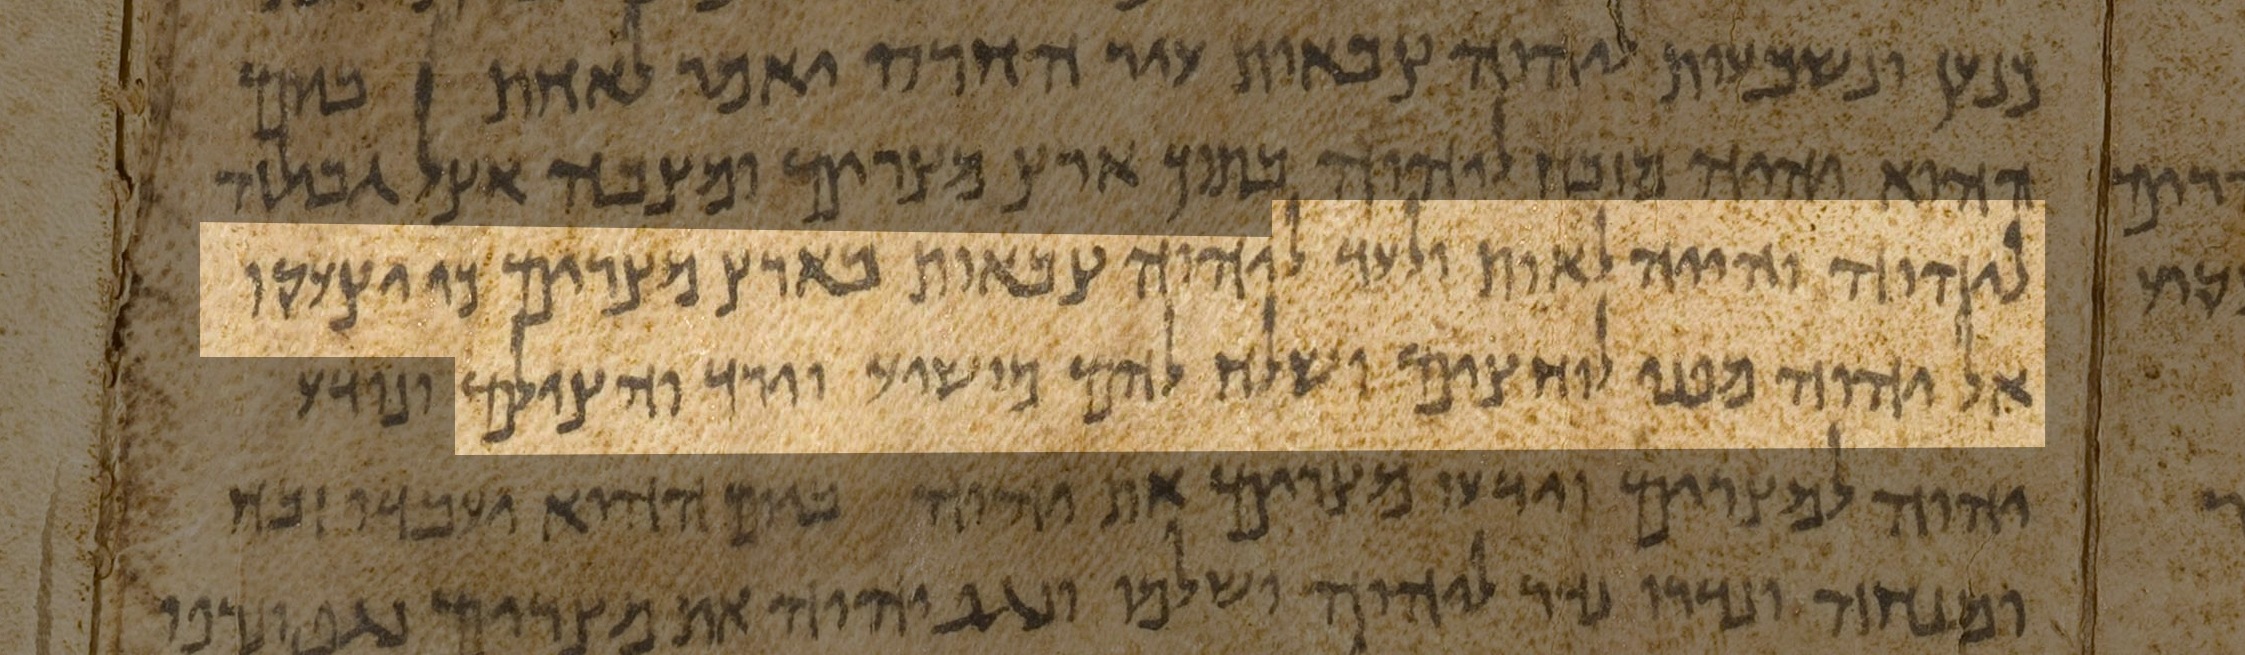 כנען ונשבעות ליהוה צבאות עיר החרס יאמר לאחת ביום
ההוא יהיה מזבח ליהוה בתוך ארץ מצרים ומצבה אצל גבולה
ליהוה והיה לאות ולעד ליהוה צבאות בארץ מצרים כי יצעקו
אל יהוה מפני לוחצים ושלח להם מושיע וירד והצילם ונודע
יהוה למצרים וידעו מצרים את יהוה ביום ההוא ועבדו זבח
ומנחה ונדרו נדר ליהוה ושלמו ונגף יהוה את מצרים נגף ונרפו